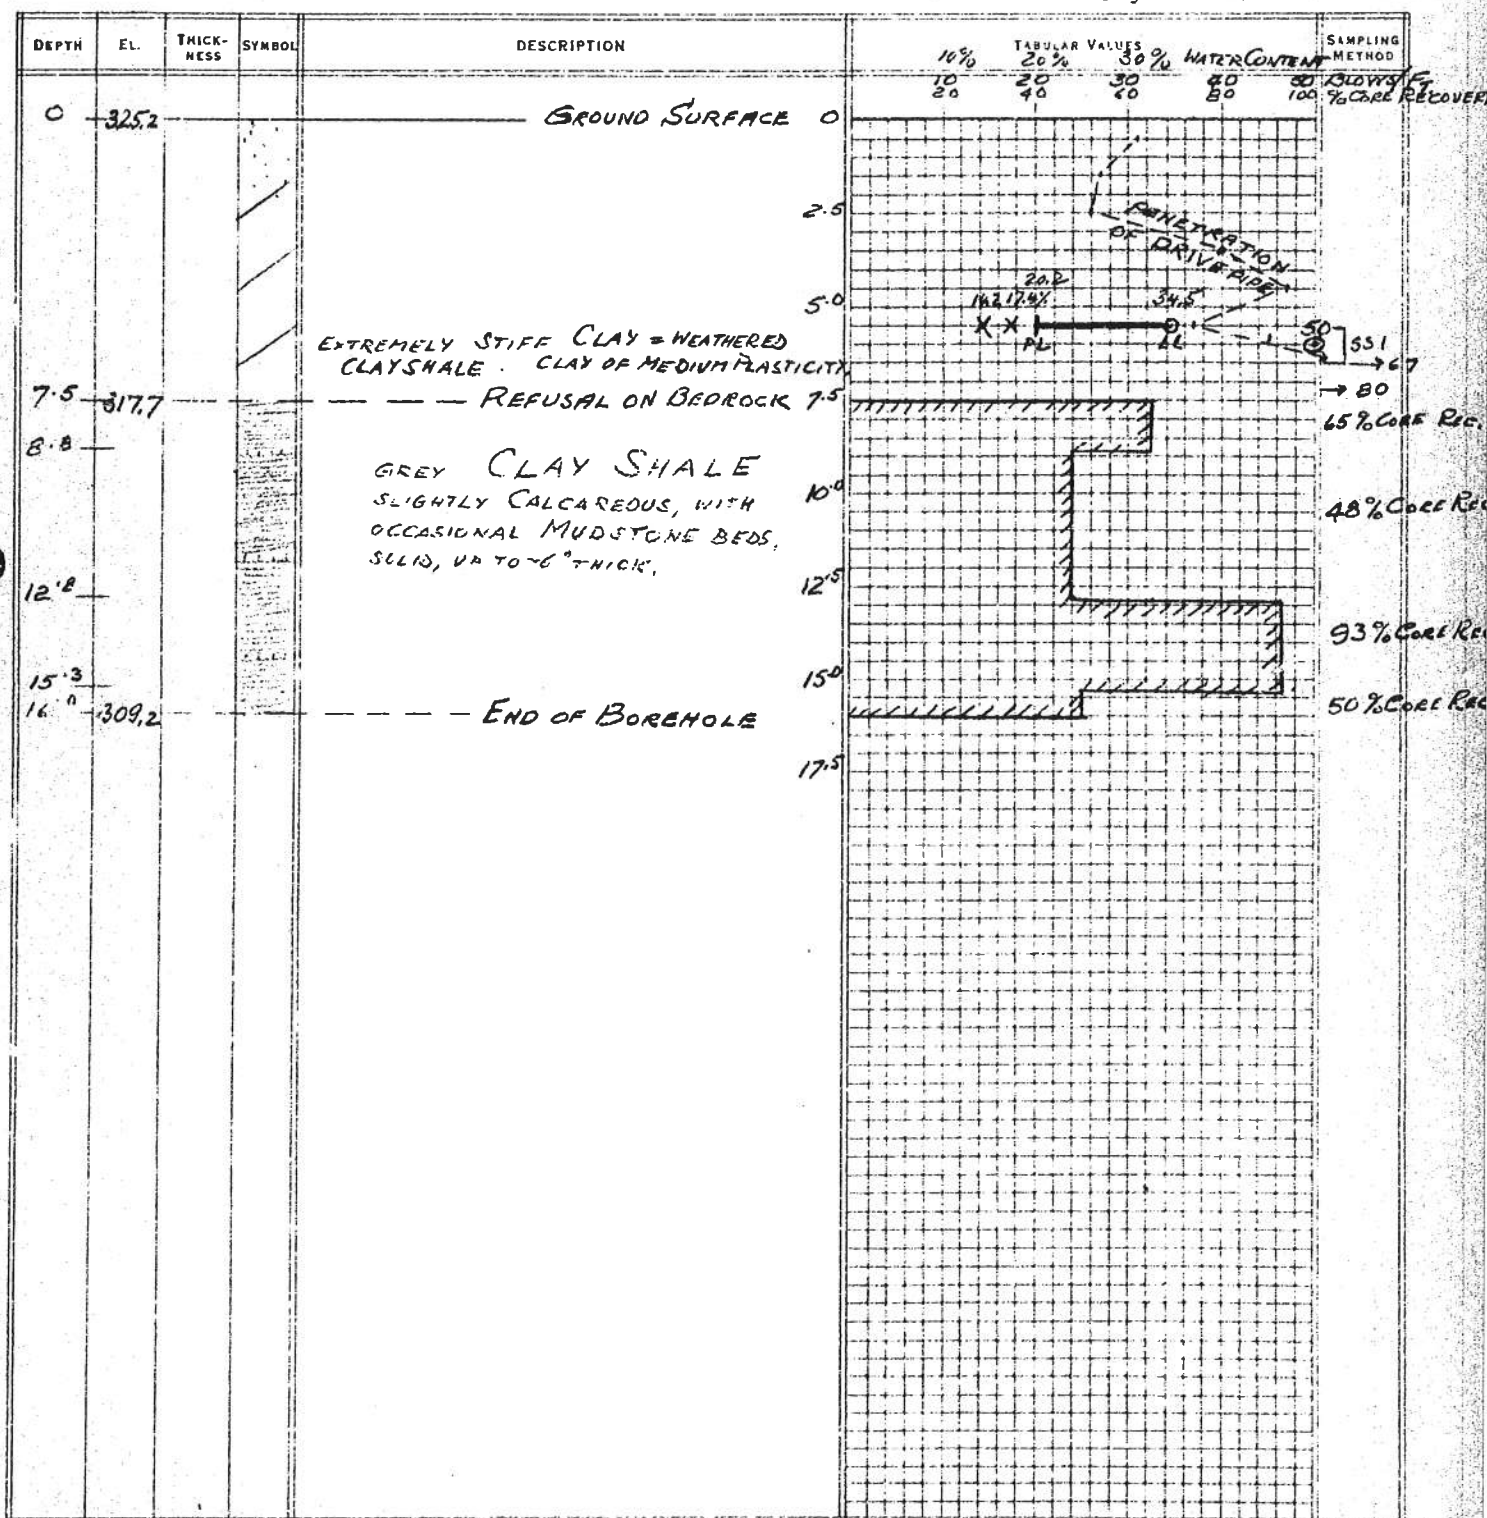 DEPTH EL. THICK-NESS SYMBOL DESCRIPTION TABULAR VALUES SAMPLING METHOD
10% 20% 30% WATER CONTENT
10 20 30 40 50 BLOWS/FT
20 40 60 80 100 % CORE RECOVERY
0 325.2 GROUND SURFACE 0
2.5
PENETRATION
OF DRIVE PIPE
20.2
17.4% 34.5
5.0
PL LL
50 SS1
→ 67
EXTREMELY STIFF CLAY = WEATHERED
CLAYSHALE. CLAY OF MEDIUM PLASTICITY
→ 80
7.5 317.7 REFUSAL ON BEDROCK 7.5
65% CORE REC.
8.8
GREY CLAY SHALE
SLIGHTLY CALCAREOUS, WITH
10.0
48% CORE REC
OCCASIONAL MUDSTONE BEDS,
SOLID, UP TO ~6" THICK.
12.5
12.8
93% CORE REC
15.3
15.0
50% CORE REC
16.0 309.2 END OF BOREHOLE
17.5